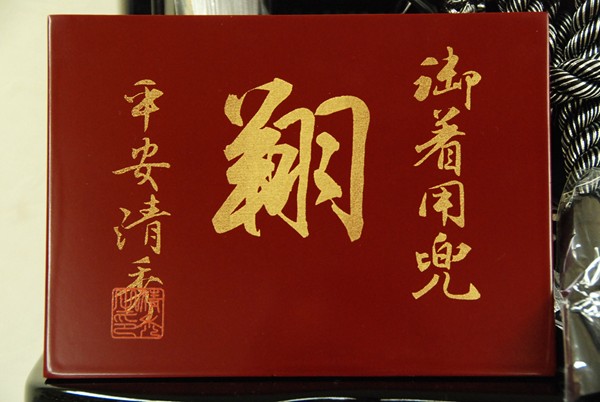 御着用兜
翔
平安清秀